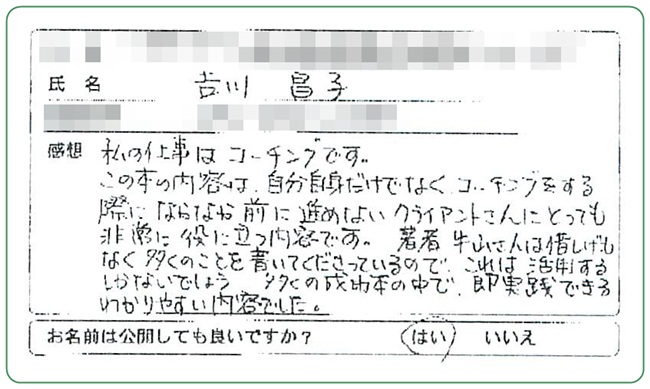 氏名 吉川 昌子
感想 私の仕事は コーチングです。
この本の内容は、自分自身だけでなく、コーチングをする
際に なかなか 前に 進めない クライアントさんにとっても
非常に 役に立つ内容です。 著者 牛山さんは惜しげも
なく 多くのことを 書いてくださっているので、これは 活用する
しかないでしょう 多くの成功本の中で、即実践できる
わかりやすい 内容でした。
お名前は公開しても良いですか? はい いいえ